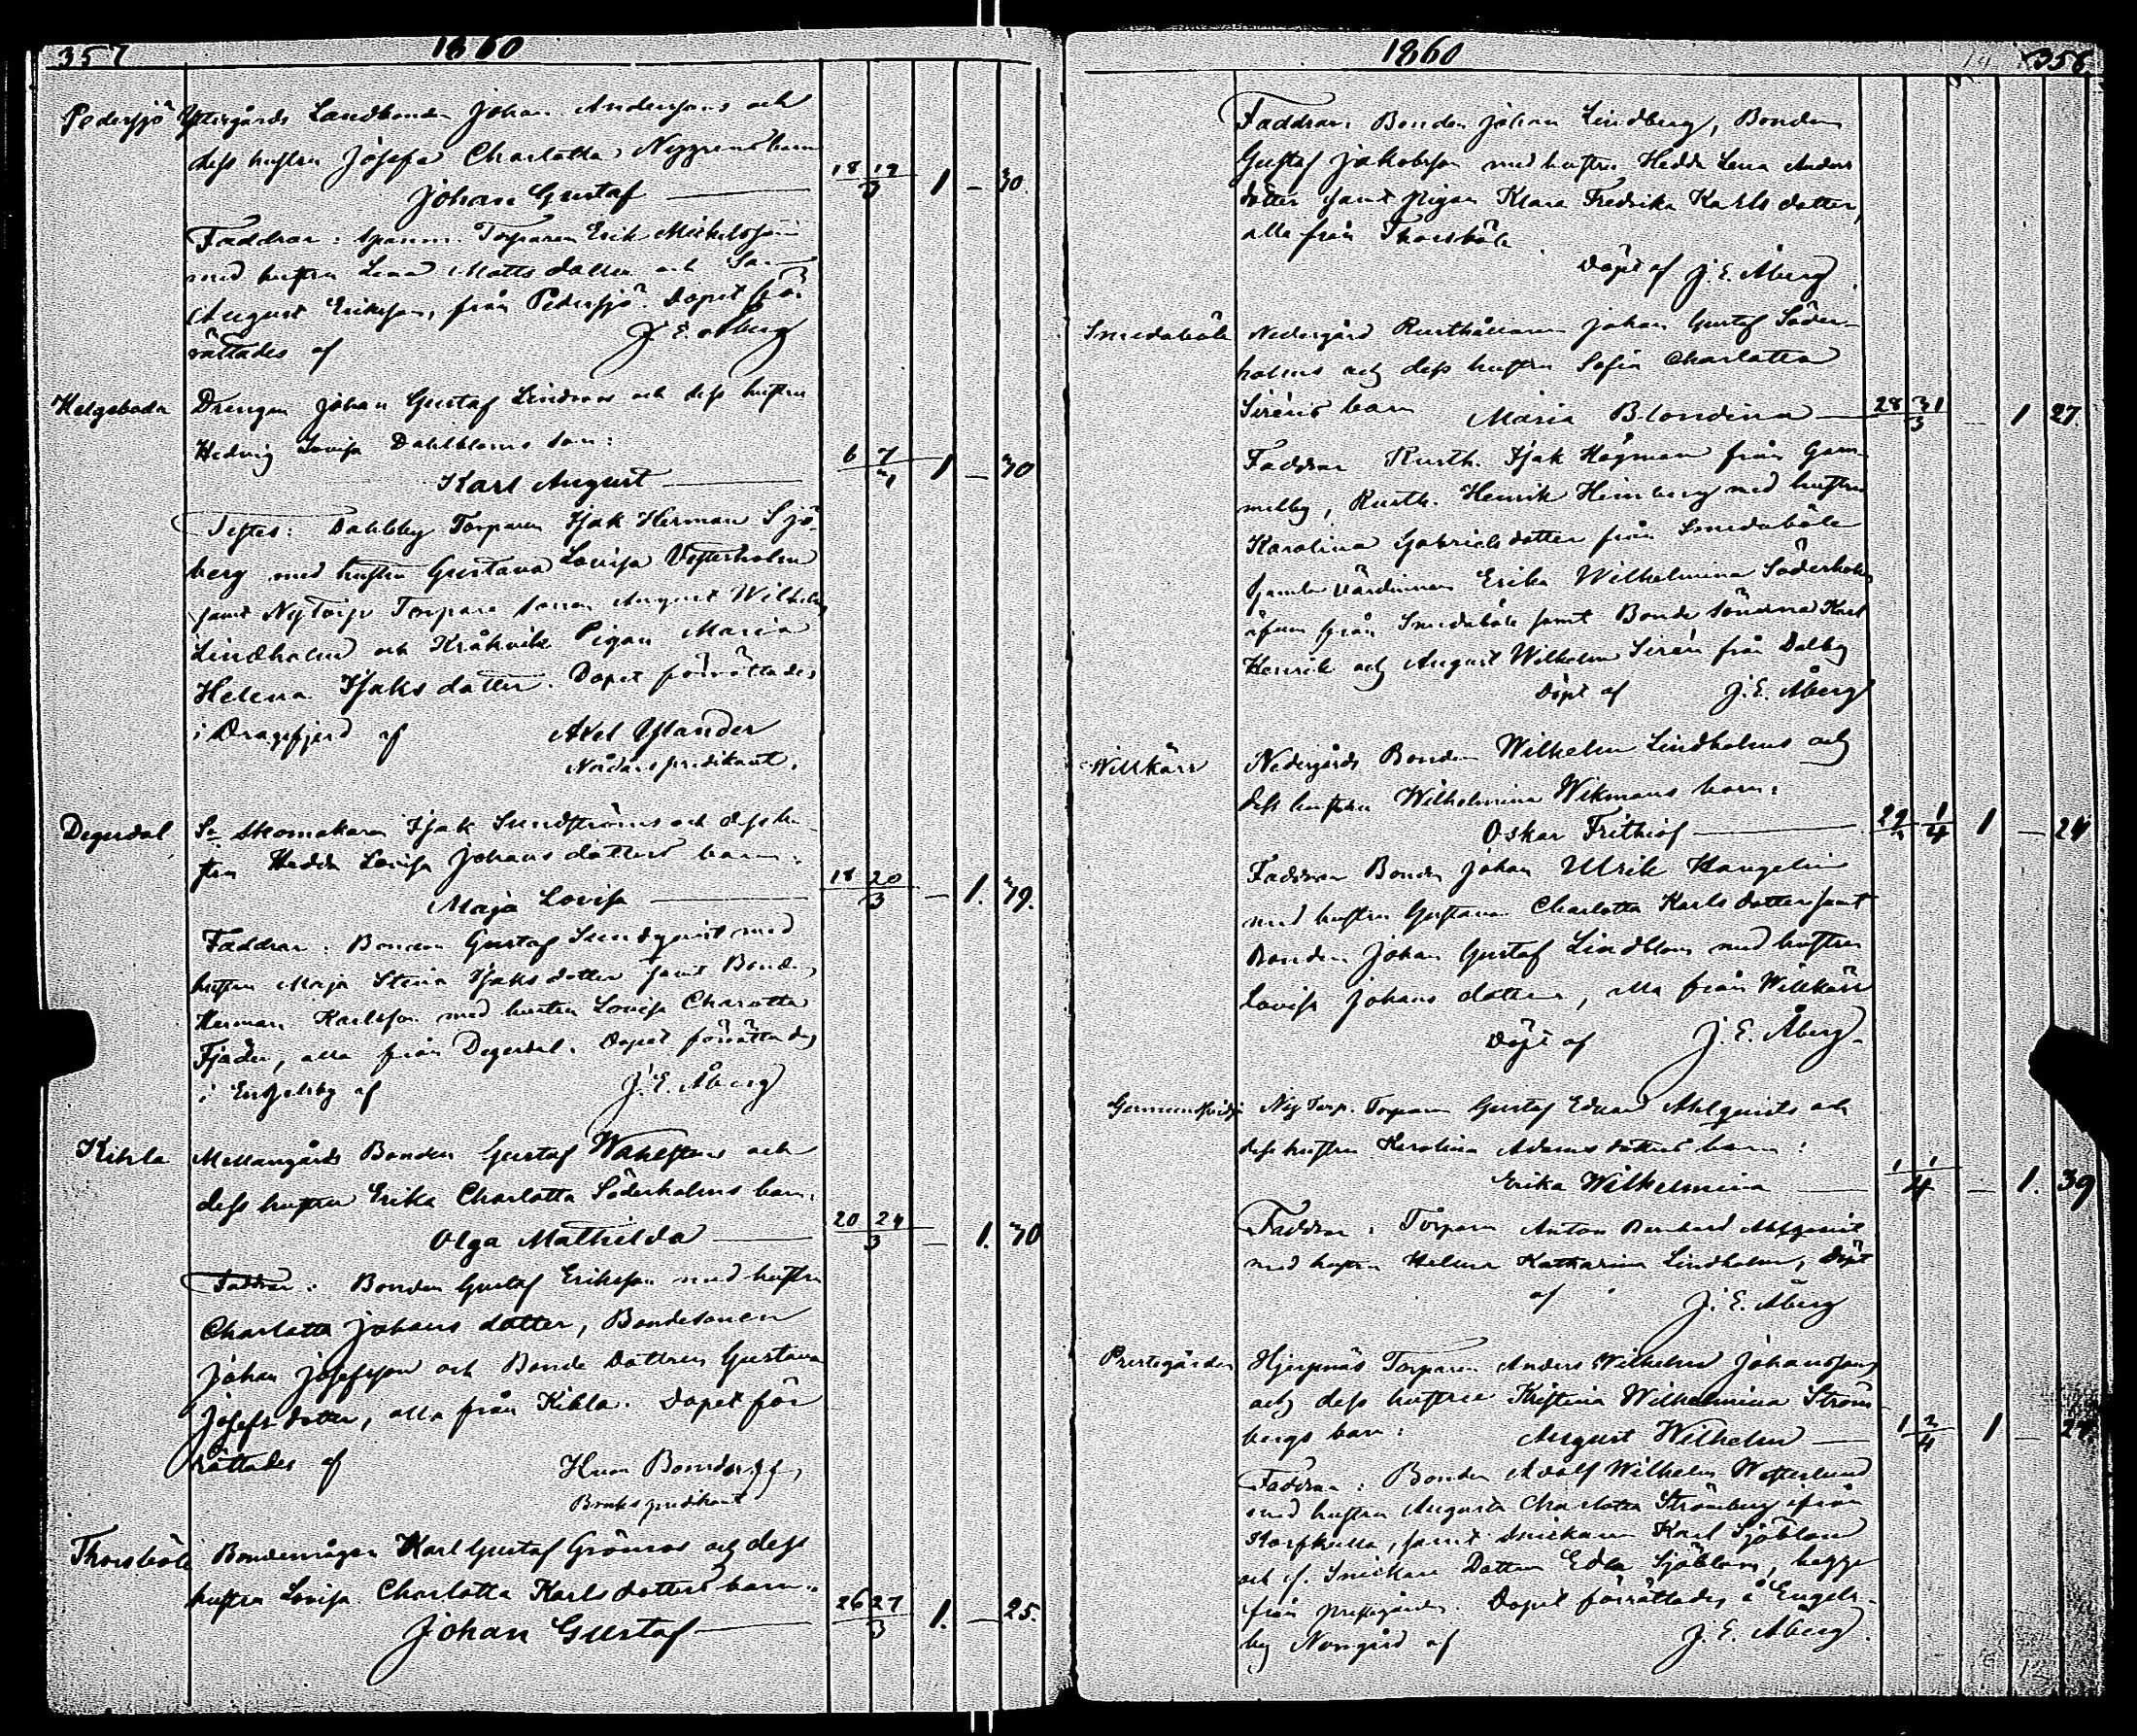 357
1860
Pedersjö Yttergårds Landbonden Johan Anderssons och
dess hustru Josefa Charlotta Nygrens barn
Johan Gustaf 18 19/3 1 – 30.
Faddrar: Torparen Erik Michelsson
med hustru Lena Mattsdotter och
August Eriksson, från Pedersjö. Dopet för-
rättades af J. E. Åberg
Helgeboda Drengen Johan Gustaf Lindroos och dess hustru
Hedvig Lovisa Dahlbloms son:
Karl August 6 7/3 1 – 30
Testes: Dahlsby Torparen Isak Herman Sjö-
berg med hustru Gustava Lovisa Vesterholm
samt Nytorp Torpare sonen August Wilhelm
Lindholm och Kråkvik Pigan Maria
Helena Isaks dotter. Dopet förrättades
i Dragsfjerd af Axel Yrlander
Nådårspredikant.
Degerdal Skomakaren Isak Sundströms och dess hu-
stru Hedda Lovisa Johans dotters barn:
Maja Lovisa 18 20/3 – 1. 39.
Faddrar: Bonden Gustaf Sundqvist med
hustru Maja Stina Isaks dotter samt Bonden
Herman Karlsson med hustru Lovisa Charlotta
Fjäder, alla från Degerdal. Dopet förrättades
i Engelsby af J. E. Åberg
Kihla Mellangårds Bonden Gustaf Wahlstens och
dess hustru Erika Charlotta Söderholms barn:
Olga Mathilda 20 24/3 – 1. 30
Faddrar: Bonden Gustaf Eriksson med hustru
Charlotta Johans dotter, Bondesonen
Johan Josefsson och Bonde Dottren Gustava
Josefs dotter, alla från Kihla. Dopet för
rättades af
Brukspredikant
Thorsböle Bondemågen Karl Gustaf Grönroos och dess
hustru Lovisa Charlotta Karls dotters barn:
Johan Gustaf 26 27/3 1. – 25.
1860
358
Faddrar: Bonden Johan Lindberg, Bonden
Gustaf Jakobsson med hustru Hedda Lena Anders
dotter samt pigan Klara Fredrika Karls dotter,
alla från Thorsböle
Döpt af J. E. Åberg.
Smedaböle Nedergård Rusthållaren Johan Gustaf Söder-
holms och dess hustru Sofia Charlotta
Siréns barn Maria Blondina 28 31/3 – 1 27.
Faddrar Rusth. Isak Högman från Gam-
melby, Rusth. Henrik Heinberg med hustru
Karolina Gabriels dotter från Smedaböle
Gamla värdinnan Erika Wilhelmina Söderholm
äfven från Smedaböle samt Bonde sönerna Karl
Henrik och August Wilhelm Sirén från Dalby
Döpt af J. E. Åberg
Willkärr Nedergårds Bonden Wilhelm Lindholms och
dess hustru Wilhelmina Wikmans barn:
Oskar Frithiof 29/3 1/4 1 – 24
Faddrar Bonden Johan Ulrik Hangelin
med hustru Gustava Charlotta Karls dotter samt
Bonden Johan Gustaf Lindblom med hustru
Lovisa Johans dotter, alla från Willkärr
Döpt af J. E. Åberg.
Ny Torp. Torparen Gustaf Edvard Ahlqvists och
dess hustru Karolina Adams dotters barn:
Erika Wilhelmina 1 1/4 – 1. 39
Faddrar: Torparen Anton Bernhard Ahlqvist
med hustru Helena Katharina Lindholm, Döpt
af J. E. Åberg
Prestegården Hjerpnäs Torparen Anders Wilhelm Johanssons
och dess hustru Kristina Wilhelmina Ström
bergs barn: August Wilhelm 1 2/4 1 – 27.
Faddrar: Bonden Adolf Wilhelm Westerlund
med hustru Augusta Charlotta Strömberg ifrån
samt Snickaren Karl Sjöblom
och Snickare Dottren Edla Sjöblom, begge
från prestgården. Dopet förrättades å Engels-
by Norrgård af J. E. Åberg.